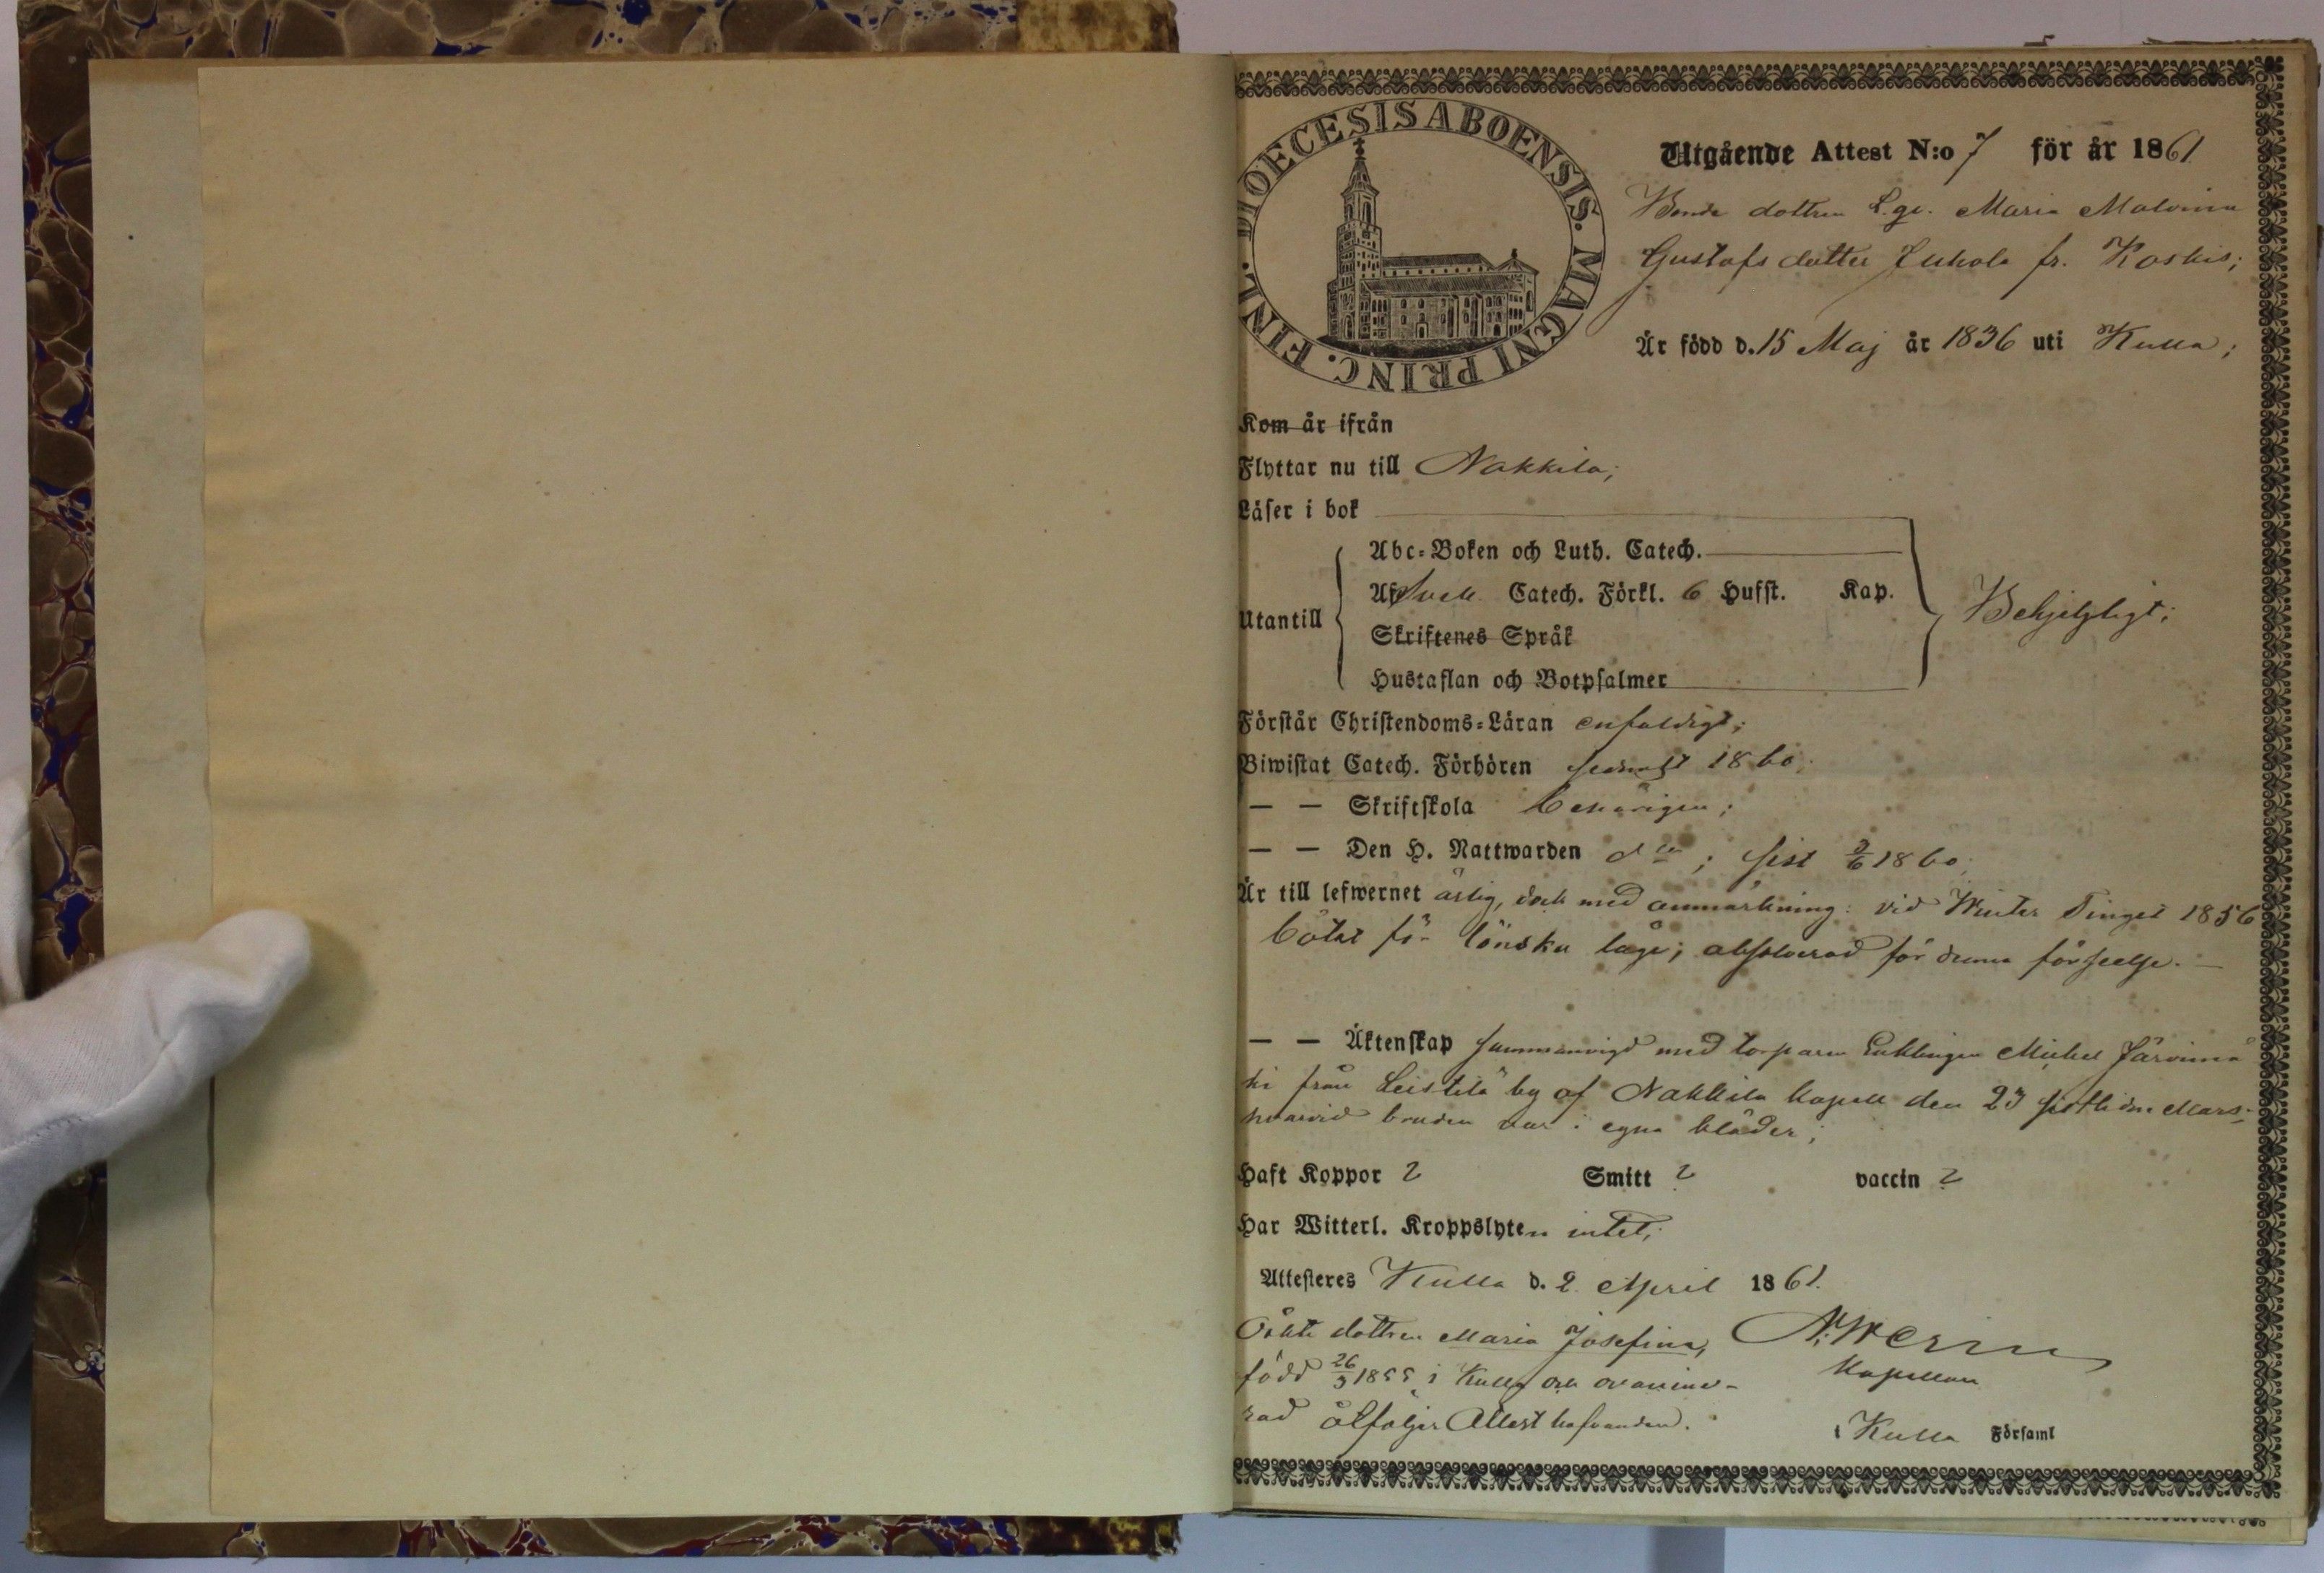 DIOECESIS ABOENSIS. MAGNI PRINC. FINL.
Utgående Attest N:o 7 för år 1861
Bonde dottren L.ge. Maria Malvina
Gustafs dotter Juhola fr. Koskis;
Är född d. 15 Maj år 1836 uti Kulla;
Kom år ifrån
Flyttar nu till Nakkila;
Läser i bok
Abc-Boken och Luth. Catech.
Af Sveb. Catech. Förkl. 6 Hufst. Kap.
Utantill
Behjelpligt;
Skriftenes Språk
Hustaflan och Botpsalmer
Förstår Christendoms-Läran enfaldigt;
Biwistat Catech. Förhören sednast 1860;
— — Skriftskola behörigen;
— — Den H. Nattwarden d:o; sist 3/6 1860;
Är till lefwernet ärlig, dock med anmärkning: vid Winter Tinget 1856
bötat för lönska läge; absolverad för denna förseelse. —
— — Äktenskap sammanvigd med torparen Enklingen Michel Järvinmä
ki från Leistilä by af Nakkila kapell den 23 sistlidne Mars;
hvarvid bruden var i egna kläder;
Haft Koppor ? Smitt ? vaccin ?
Har Witterl. Kroppslyten intet;
Attesteres Kulla d. 2 April 1861.
Oäkta dottren Maria Josefina,
född 26/3 1855 i Kulla och
rad åtföljer Attest hafvanden.
Kapellan
i Kulla Församl